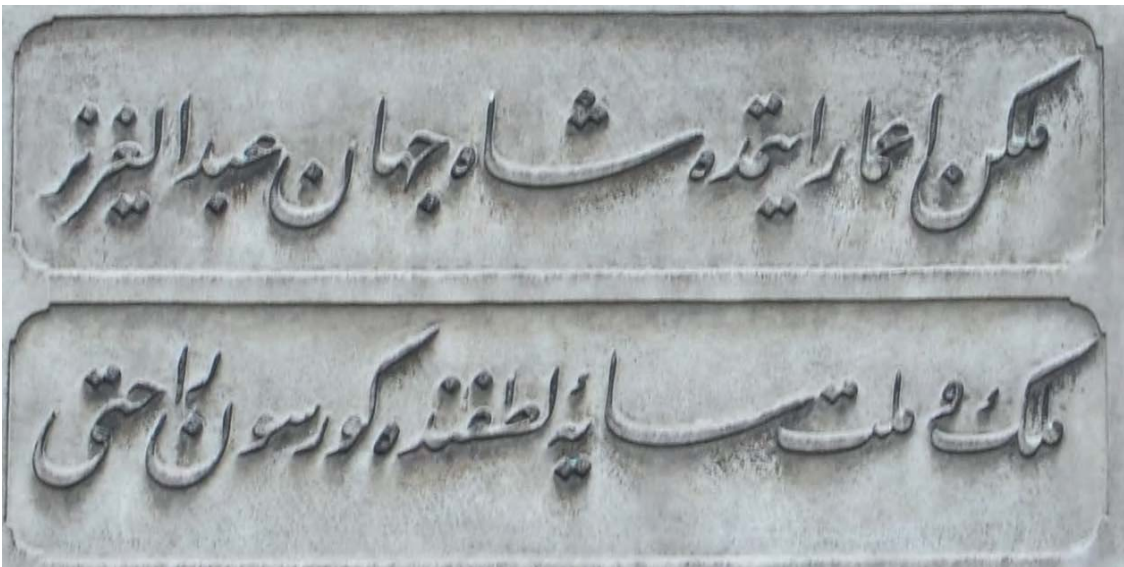 ملكن اعمار ايتمده شاه جهان عبدالعزيز
ملك و ملت سايۀ لطفنده كورسون راحتى